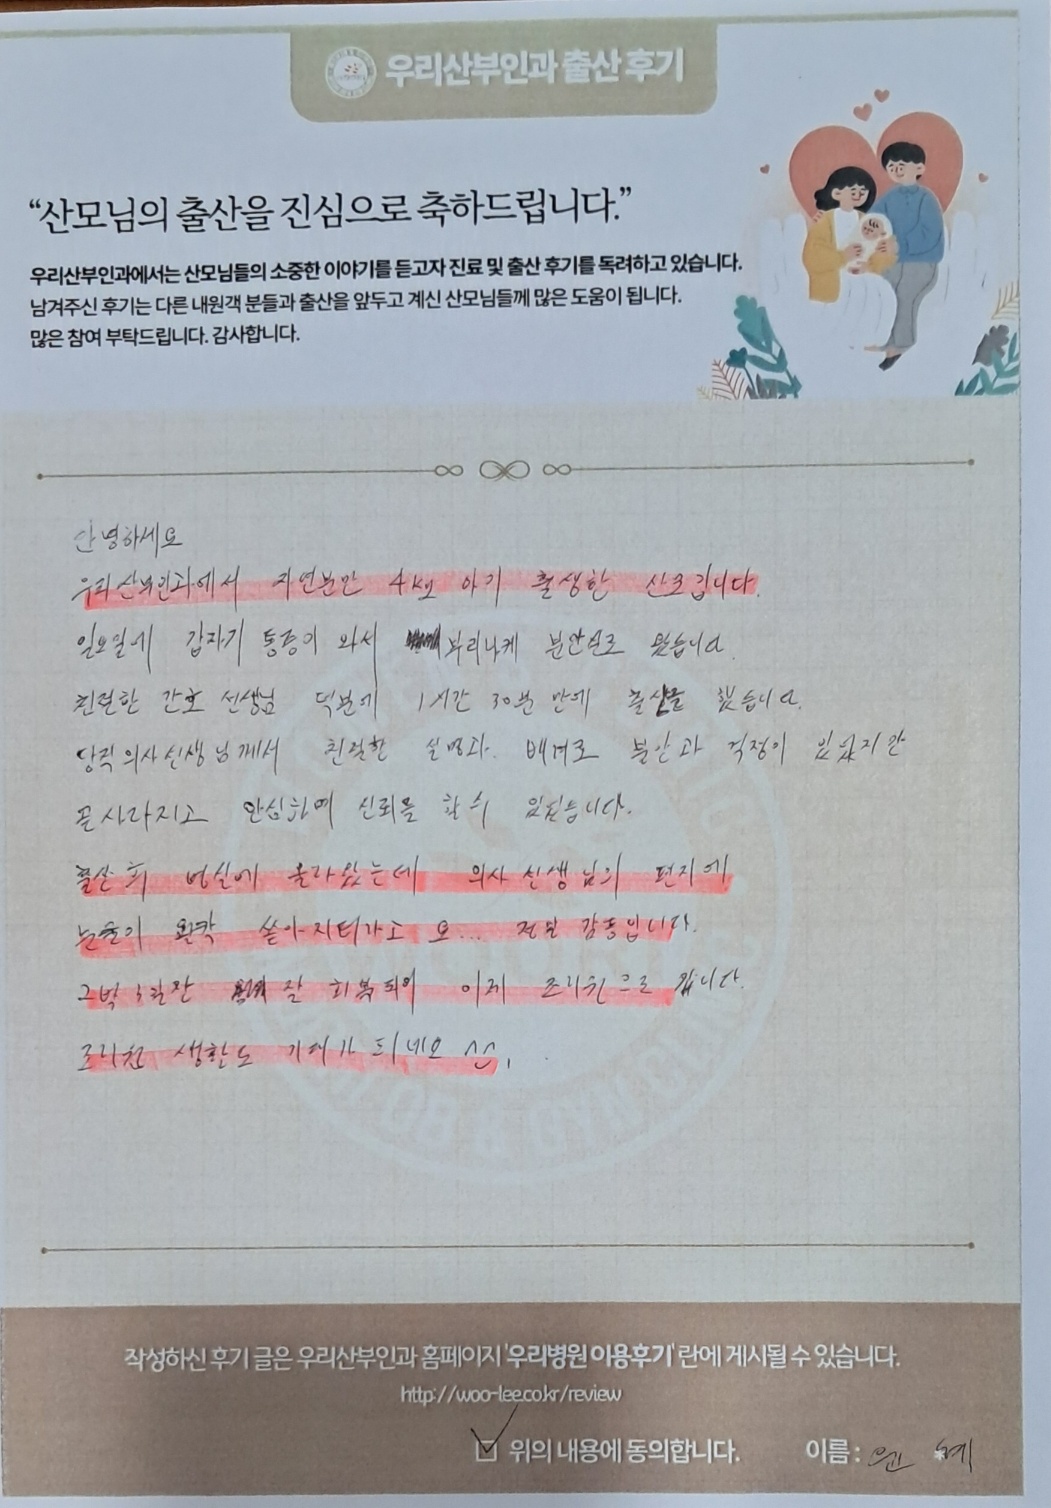 우리산부인과 출산 후기
“산모님의 출산을 진심으로 축하드립니다.”
우리산부인과에서는 산모님들의 소중한 이야기를 듣고자 진료 및 출산 후기를 독려하고 있습니다.
남겨주신 후기는 다른 내원객 분들과 출산을 앞두고 계신 산모님들께 많은 도움이 됩니다.
많은 참여 부탁드립니다. 감사합니다.
안녕하세요
우리산부인과에서 자연분만 4kg 아기 출생한 산모입니다.
일요일에 갑자기 통증이 와서 부리나케 분만실로 왔습니다.
친절한 간호 선생님 덕분에 1시간 30분 만에 출산을 했습니다.
당직의사선생님께서 친절한 설명과. 배려로 분만과 걱정이 있었지만
곧 사라지고 안심하며 신뢰를 할 수 있었습니다.
출산 후 병실에 올라왔는데 의사 선생님의 편지에
눈물이 왈칵 쏟아지더라고 요... 전부 감동입니다.
2박 3일만 잘 회복되어 이제 조리원으로 갑니다.
조리원 생활도 기대가 되네요 ^^.
OB & GYN CLINIC
작성하신 후기 글은 우리산부인과 홈페이지 '우리병원 이용후기' 란에 게시될 수 있습니다.
http://woo-lee.co.kr/review
위의 내용에 동의합니다. 이름 :